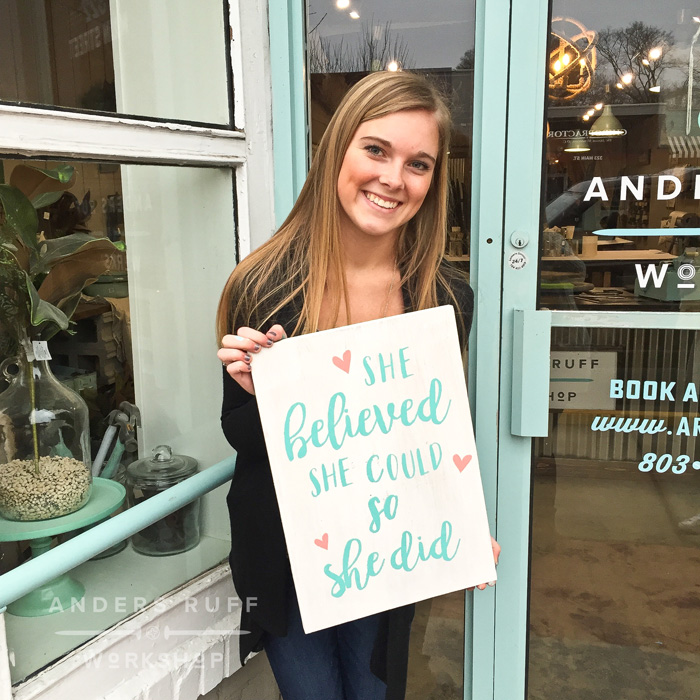 SHE
believed
SHE COULD
so
she did
ANDE
Wo
RUFF
HOP
BOOK A
www.AR
803•
24/7
222 MAIN ST.
ANDERS RUFF
WORKSHOP